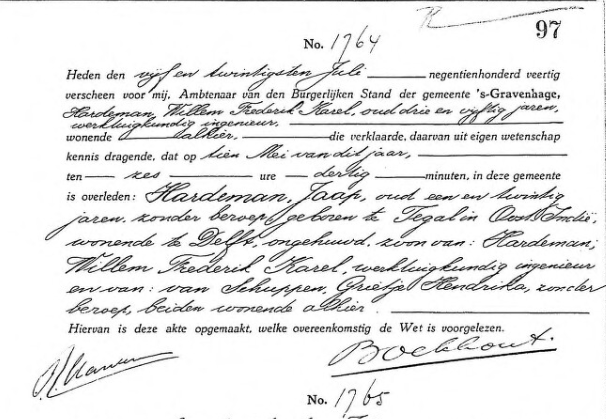 97
No. 1764
Heden den vijf en twintigsten Juli negentienhonderd veertig
verscheen voor mij, Ambtenaar van den Burgerlijken Stand der gemeente 's-Gravenhage,
Hardeman, Willem Frederik Karel, oud drie en vijftig jaren,
werktuigkundig ingenieur,
wonende alhier, die verklaarde, daarvan uit eigen wetenschap
kennis dragende, dat op tien Mei van dit jaar,
ten zes ure dertig minuten, in deze gemeente
is overleden: Hardeman, Jaap, oud een en twintig
jaren, zonder beroep, geboren te Tegal in Oost Indië,
wonende te Delft, ongehuwd, zoon van: Hardeman,
Willem Frederik Karel, werktuigkundig ingenieur
en van: van Schuppen, Grietje Hendrika, zonder
beroep, beiden wonende alhier.
Hiervan is deze akte opgemaakt, welke overeenkomstig de Wet is voorgelezen.
Boekhout.
No. 1765